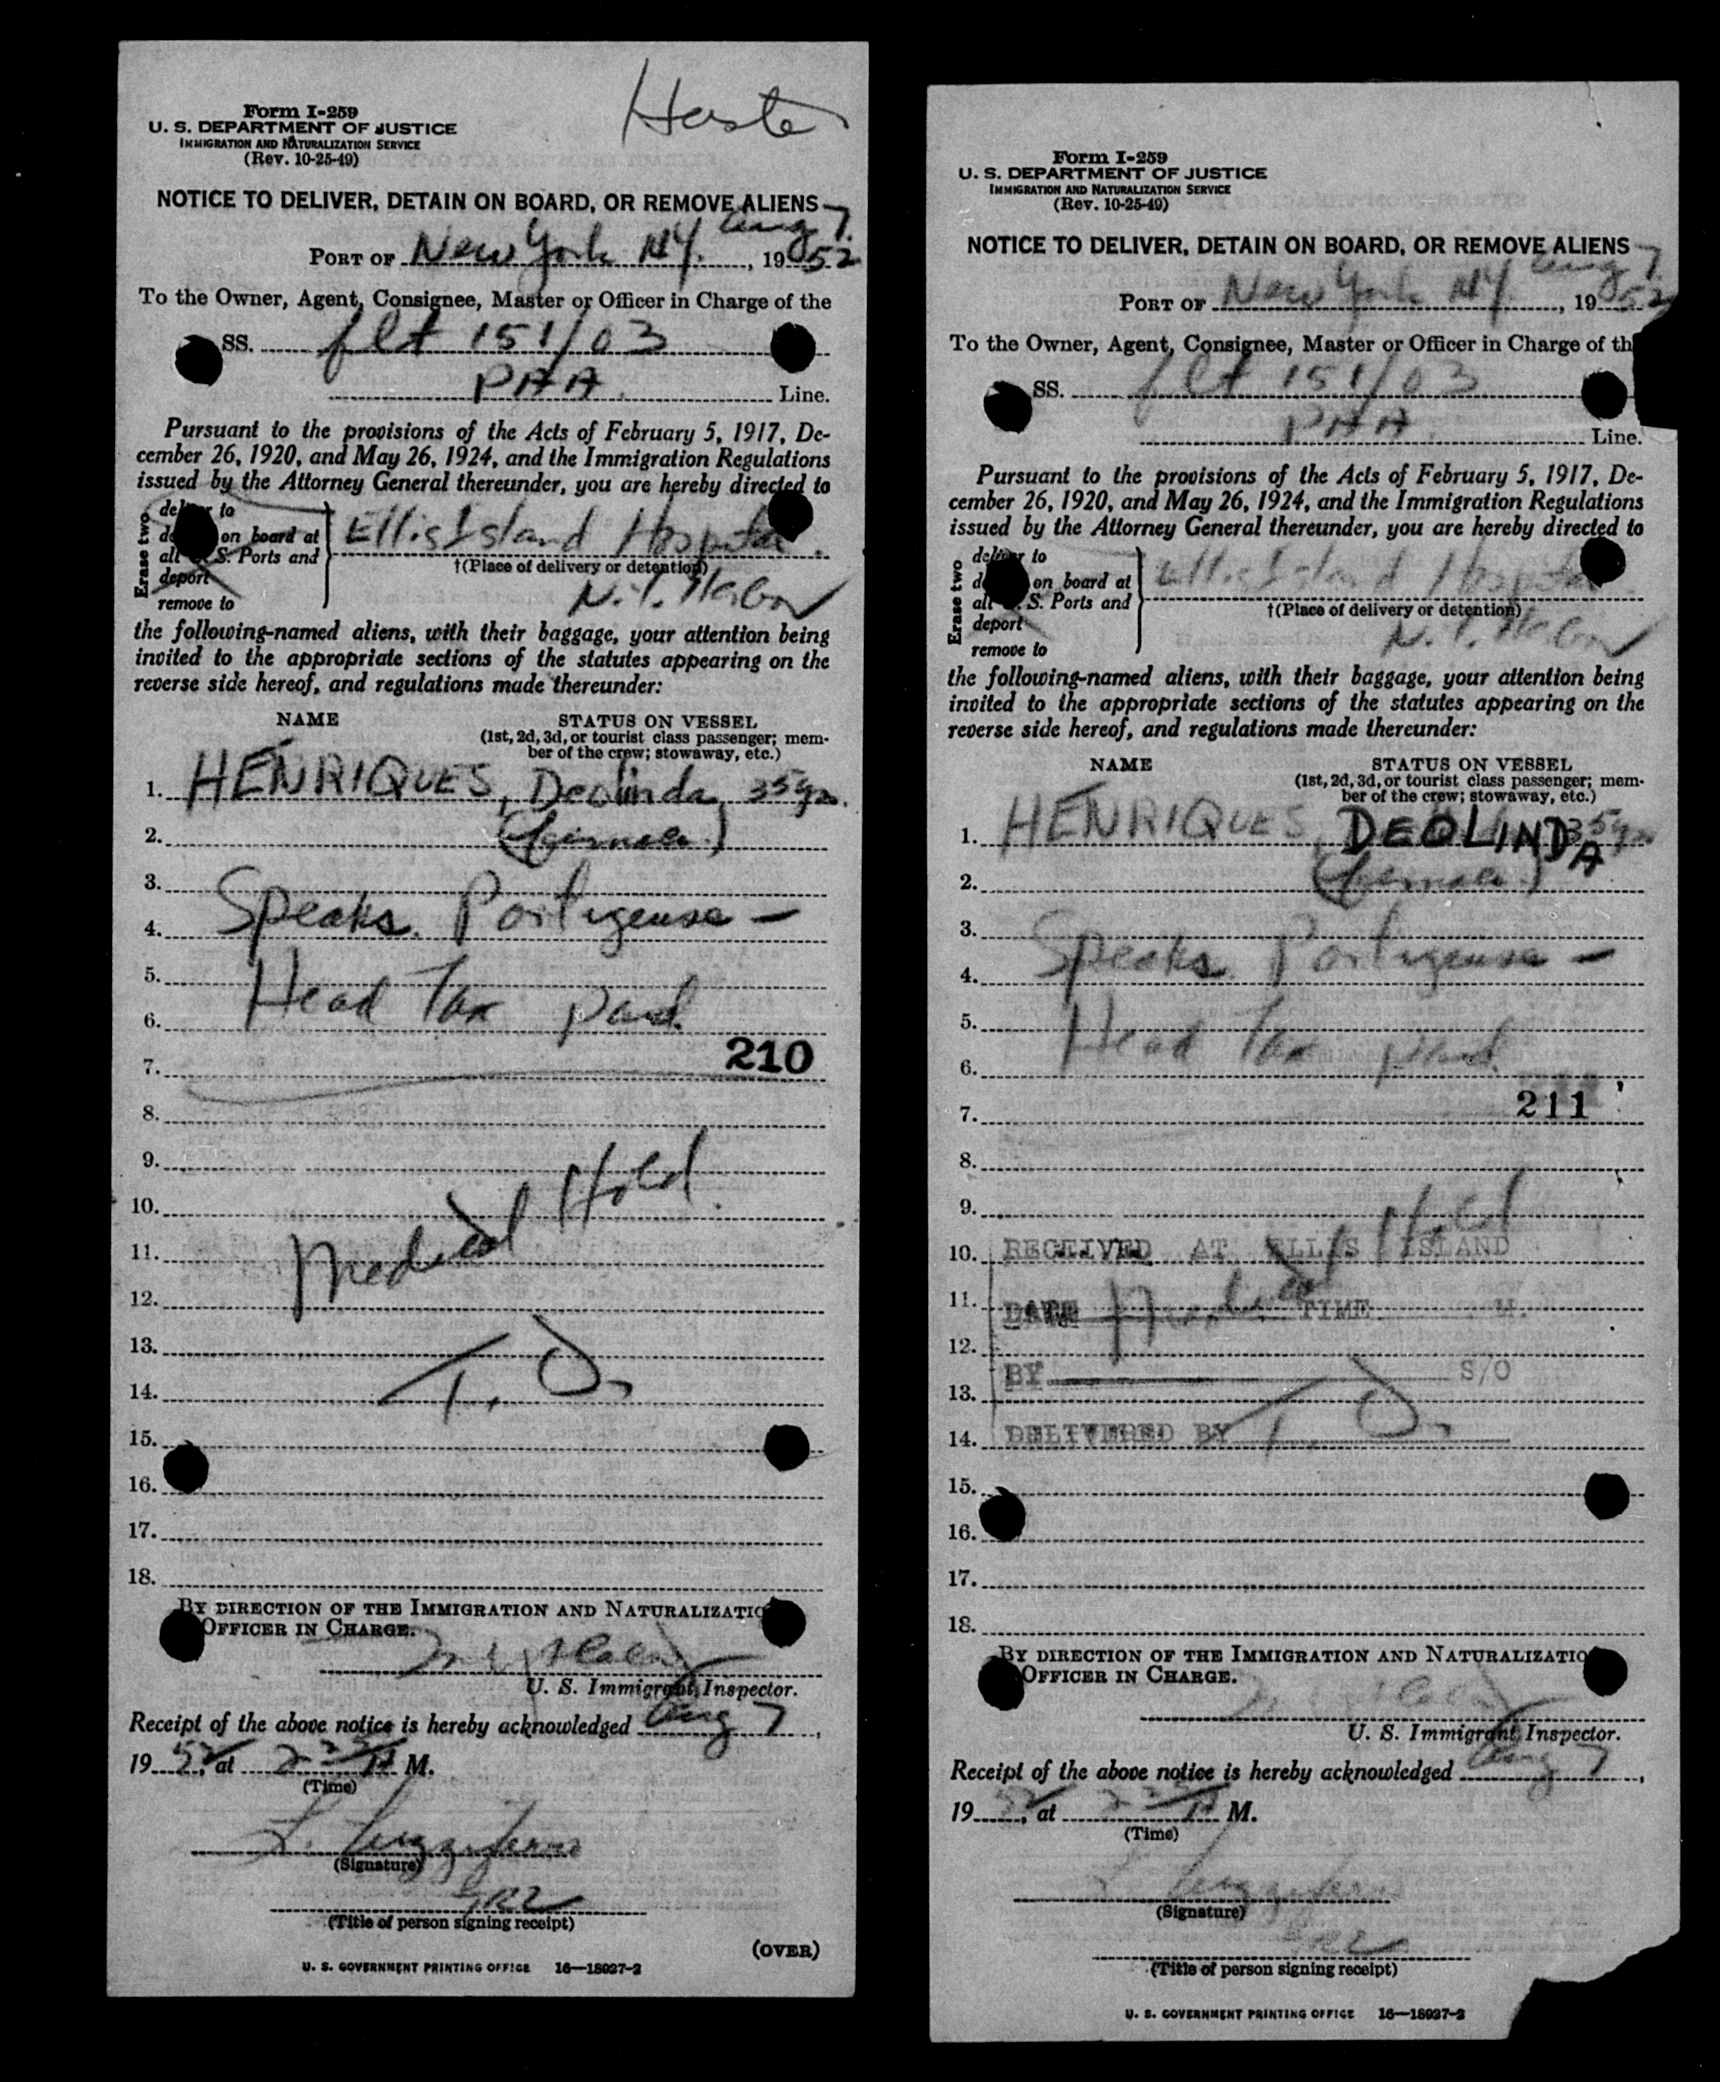 Form I-259
U. S. DEPARTMENT OF JUSTICE
IMMIGRATION AND NATURALIZATION SERVICE
(Rev. 10-25-49)
NOTICE TO DELIVER, DETAIN ON BOARD, OR REMOVE ALIENS
Aug 7.
PORT OF New York N.Y., 1952
To the Owner, Agent, Consignee, Master or Officer in Charge of the
SS. flt 151/03
PAA. Line.
Pursuant to the provisions of the Acts of February 5, 1917, De-
cember 26, 1920, and May 26, 1924, and the Immigration Regulations
issued by the Attorney General thereunder, you are hereby directed to
Erase two
to
on board at Ellis Island Hospital.
all S. Ports and
†(Place of delivery or detention)
deport
N.Y. Harbor
remove to
the following-named aliens, with their baggage, your attention being
invited to the appropriate sections of the statutes appearing on the
reverse side hereof, and regulations made thereunder:
NAME STATUS ON VESSEL
(1st, 2d, 3d, or tourist class passenger; mem-
ber of the crew; stowaway, etc.)
1. HENRIQUES, Deolinda, 35 yrs.
2. (female.)
3.
4. Speaks. Portugeuse —
5.
6. Head Tax paid.
210
7.
8.
9.
10.
11. Medical Hold.
12.
13.
14. T. D.
15.
16.
17.
18.
BY DIRECTION OF THE IMMIGRATION AND NATURALIZATIO
OFFICER IN CHARGE.
U. S. Immigrant Inspector.
Receipt of the above notice is hereby acknowledged Aug 7,
1952, at M.
(Time)
L.
(Signature)
(Title of person signing receipt)
(OVER)
U. S. GOVERNMENT PRINTING OFFICE 16—18927-2
Form I-259
U. S. DEPARTMENT OF JUSTICE
IMMIGRATION AND NATURALIZATION SERVICE
(Rev. 10-25-49)
NOTICE TO DELIVER, DETAIN ON BOARD, OR REMOVE ALIENS
Aug 7.
PORT OF New York N.Y., 1952
To the Owner, Agent, Consignee, Master or Officer in Charge of th
SS. flt 151/03
PAA. Line.
Pursuant to the provisions of the Acts of February 5, 1917, De-
cember 26, 1920, and May 26, 1924, and the Immigration Regulations
issued by the Attorney General thereunder, you are hereby directed to
Erase two
to
on board at Ellis Island Hospital.
all S. Ports and
†(Place of delivery or detention)
deport
N.Y. Harbor
remove to
the following-named aliens, with their baggage, your attention being
invited to the appropriate sections of the statutes appearing on the
reverse side hereof, and regulations made thereunder:
NAME STATUS ON VESSEL
(1st, 2d, 3d, or tourist class passenger; mem-
ber of the crew; stowaway, etc.)
1. HENRIQUES, DEOLINDA 35 yrs
2. (female.)
3.
4. Speaks. Portugeuse —
5.
6. Head Tax paid.
7. 211
8.
9.
Medical Hold
10. RECEIVED AT ELLIS ISLAND
11. DATE TIME M.
12.
BY S/O
13.
T. D.
14. DELIVERED BY
15.
16.
17.
18.
BY DIRECTION OF THE IMMIGRATION AND NATURALIZATIO
OFFICER IN CHARGE.
U. S. Immigrant Inspector.
Receipt of the above notice is hereby acknowledged Aug 7,
1952, at M.
(Time)
L.
(Signature)
(Title of person signing receipt)
U. S. GOVERNMENT PRINTING OFFICE 16—18927-2